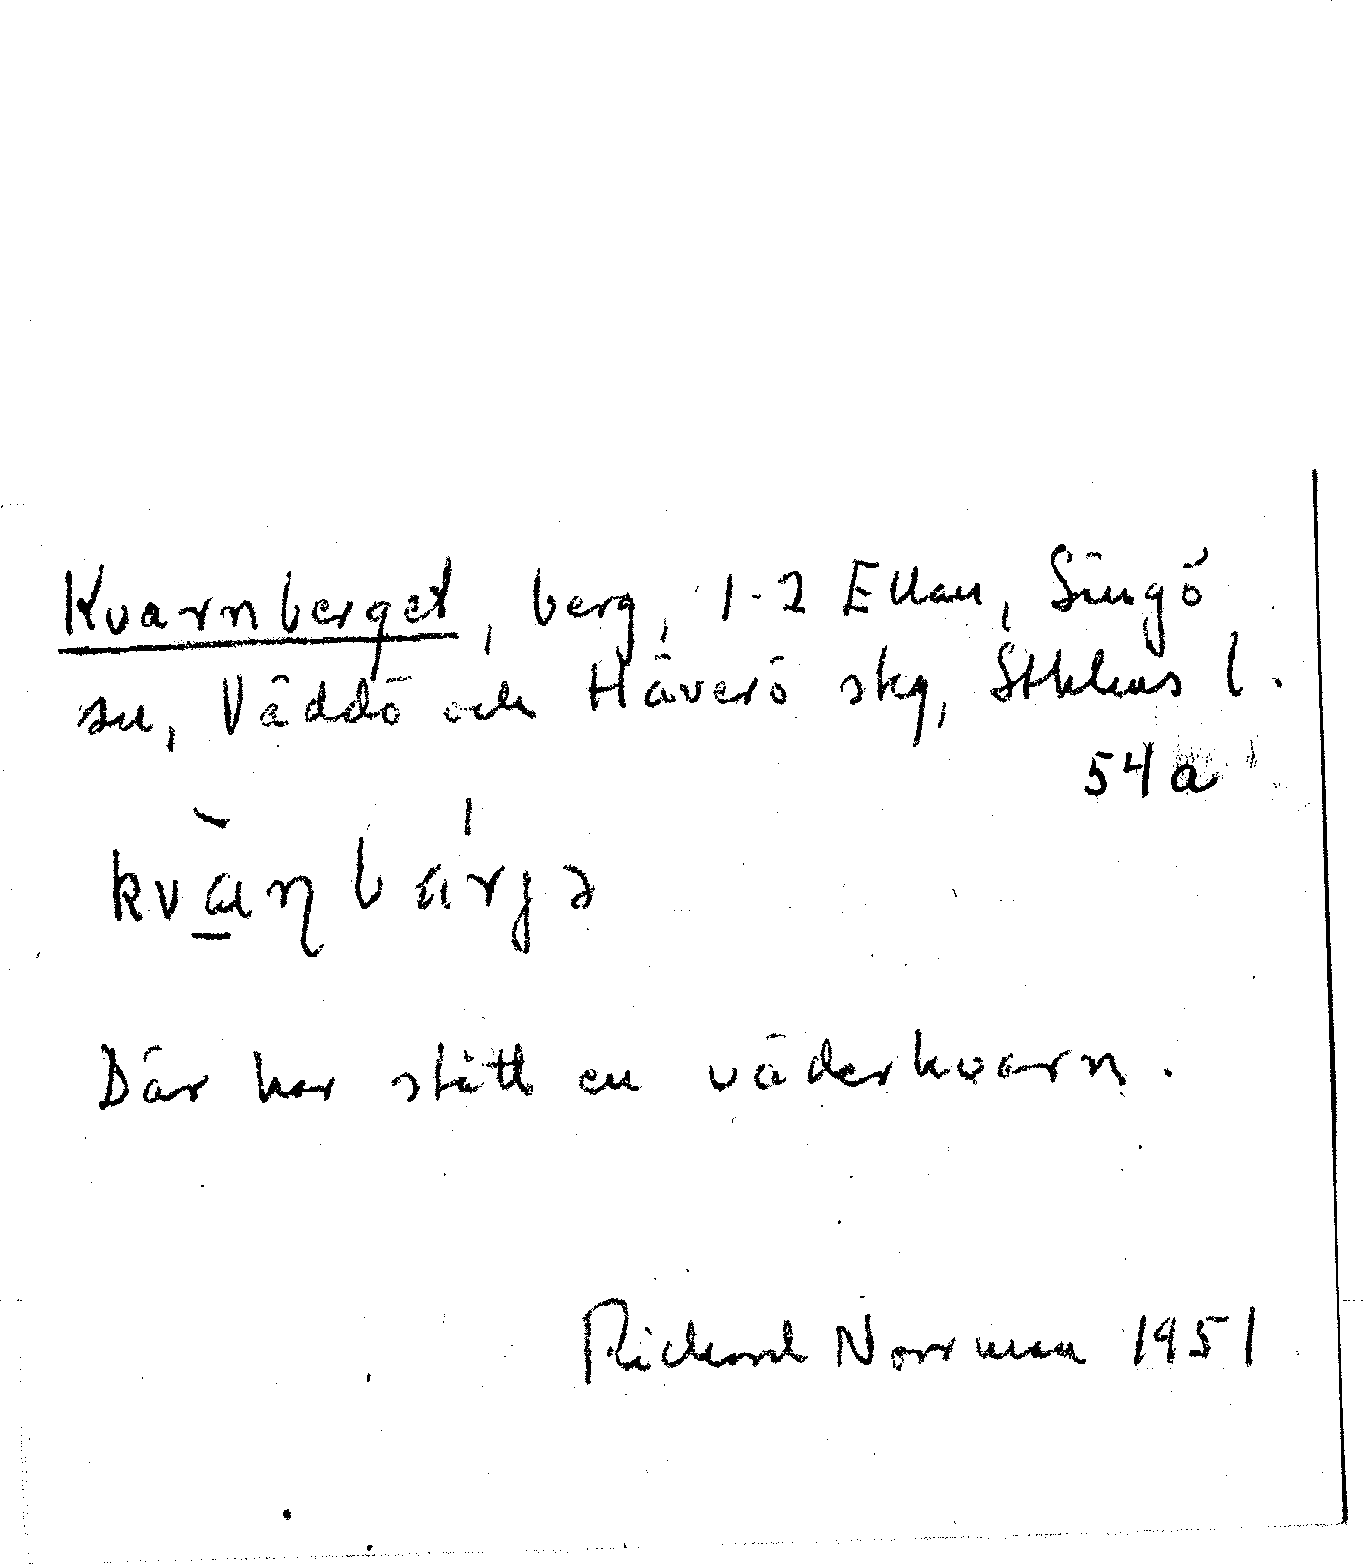 Kvarnberget, berg, 1-2 Ellan, Singö
sn, Väddö och Häverö skg, Sthlms l.
54a
Där har stått en väderkvarn.
Rickard Norrman 1951